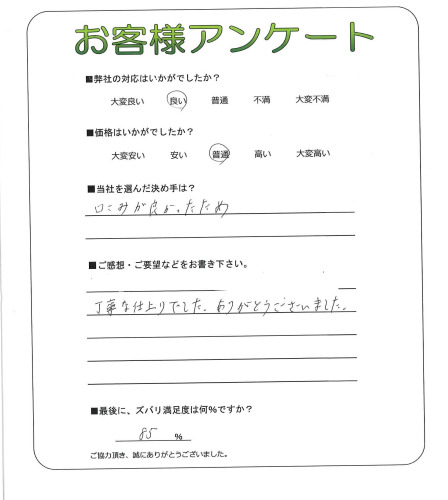 お客様アンケート
■弊社の対応はいかがでしたか?
大変良い 良い 普通 不満 大変不満
■価格はいかがでしたか?
大変安い 安い 普通 高い 大変高い
■当社を選んだ決め手は?
口こみが良かったため
■ご感想・ご要望などをお書き下さい。
丁寧な仕上りでした。ありがとうございました。
■最後に、ズバリ満足度は何%ですか?
85 %
ご協力頂き、誠にありがとうございました。